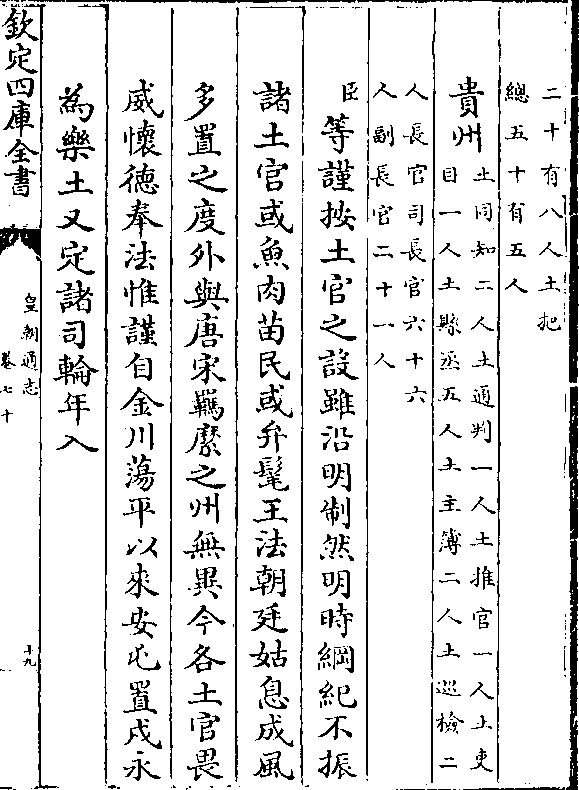 二十有八人土把
總五十有五人
貴州土同知二人土通判一人土推官一人土吏
目一人土縣丞五人土主簿二人土巡檢二
人長官司長官六十六
人副長官二十一人
臣等謹按土官之設雖沿明制然明時綱紀不振
諸土官或魚肉苗民或弁髦王法朝廷姑息成風
多置之度外與唐宋羈縻之州無異今各土官畏
威懷德奉法惟謹自金川蕩平以來安屯置戍永
為樂土又定諸司輪年入
欽定四庫全書
皇朝通志
卷七十
十九